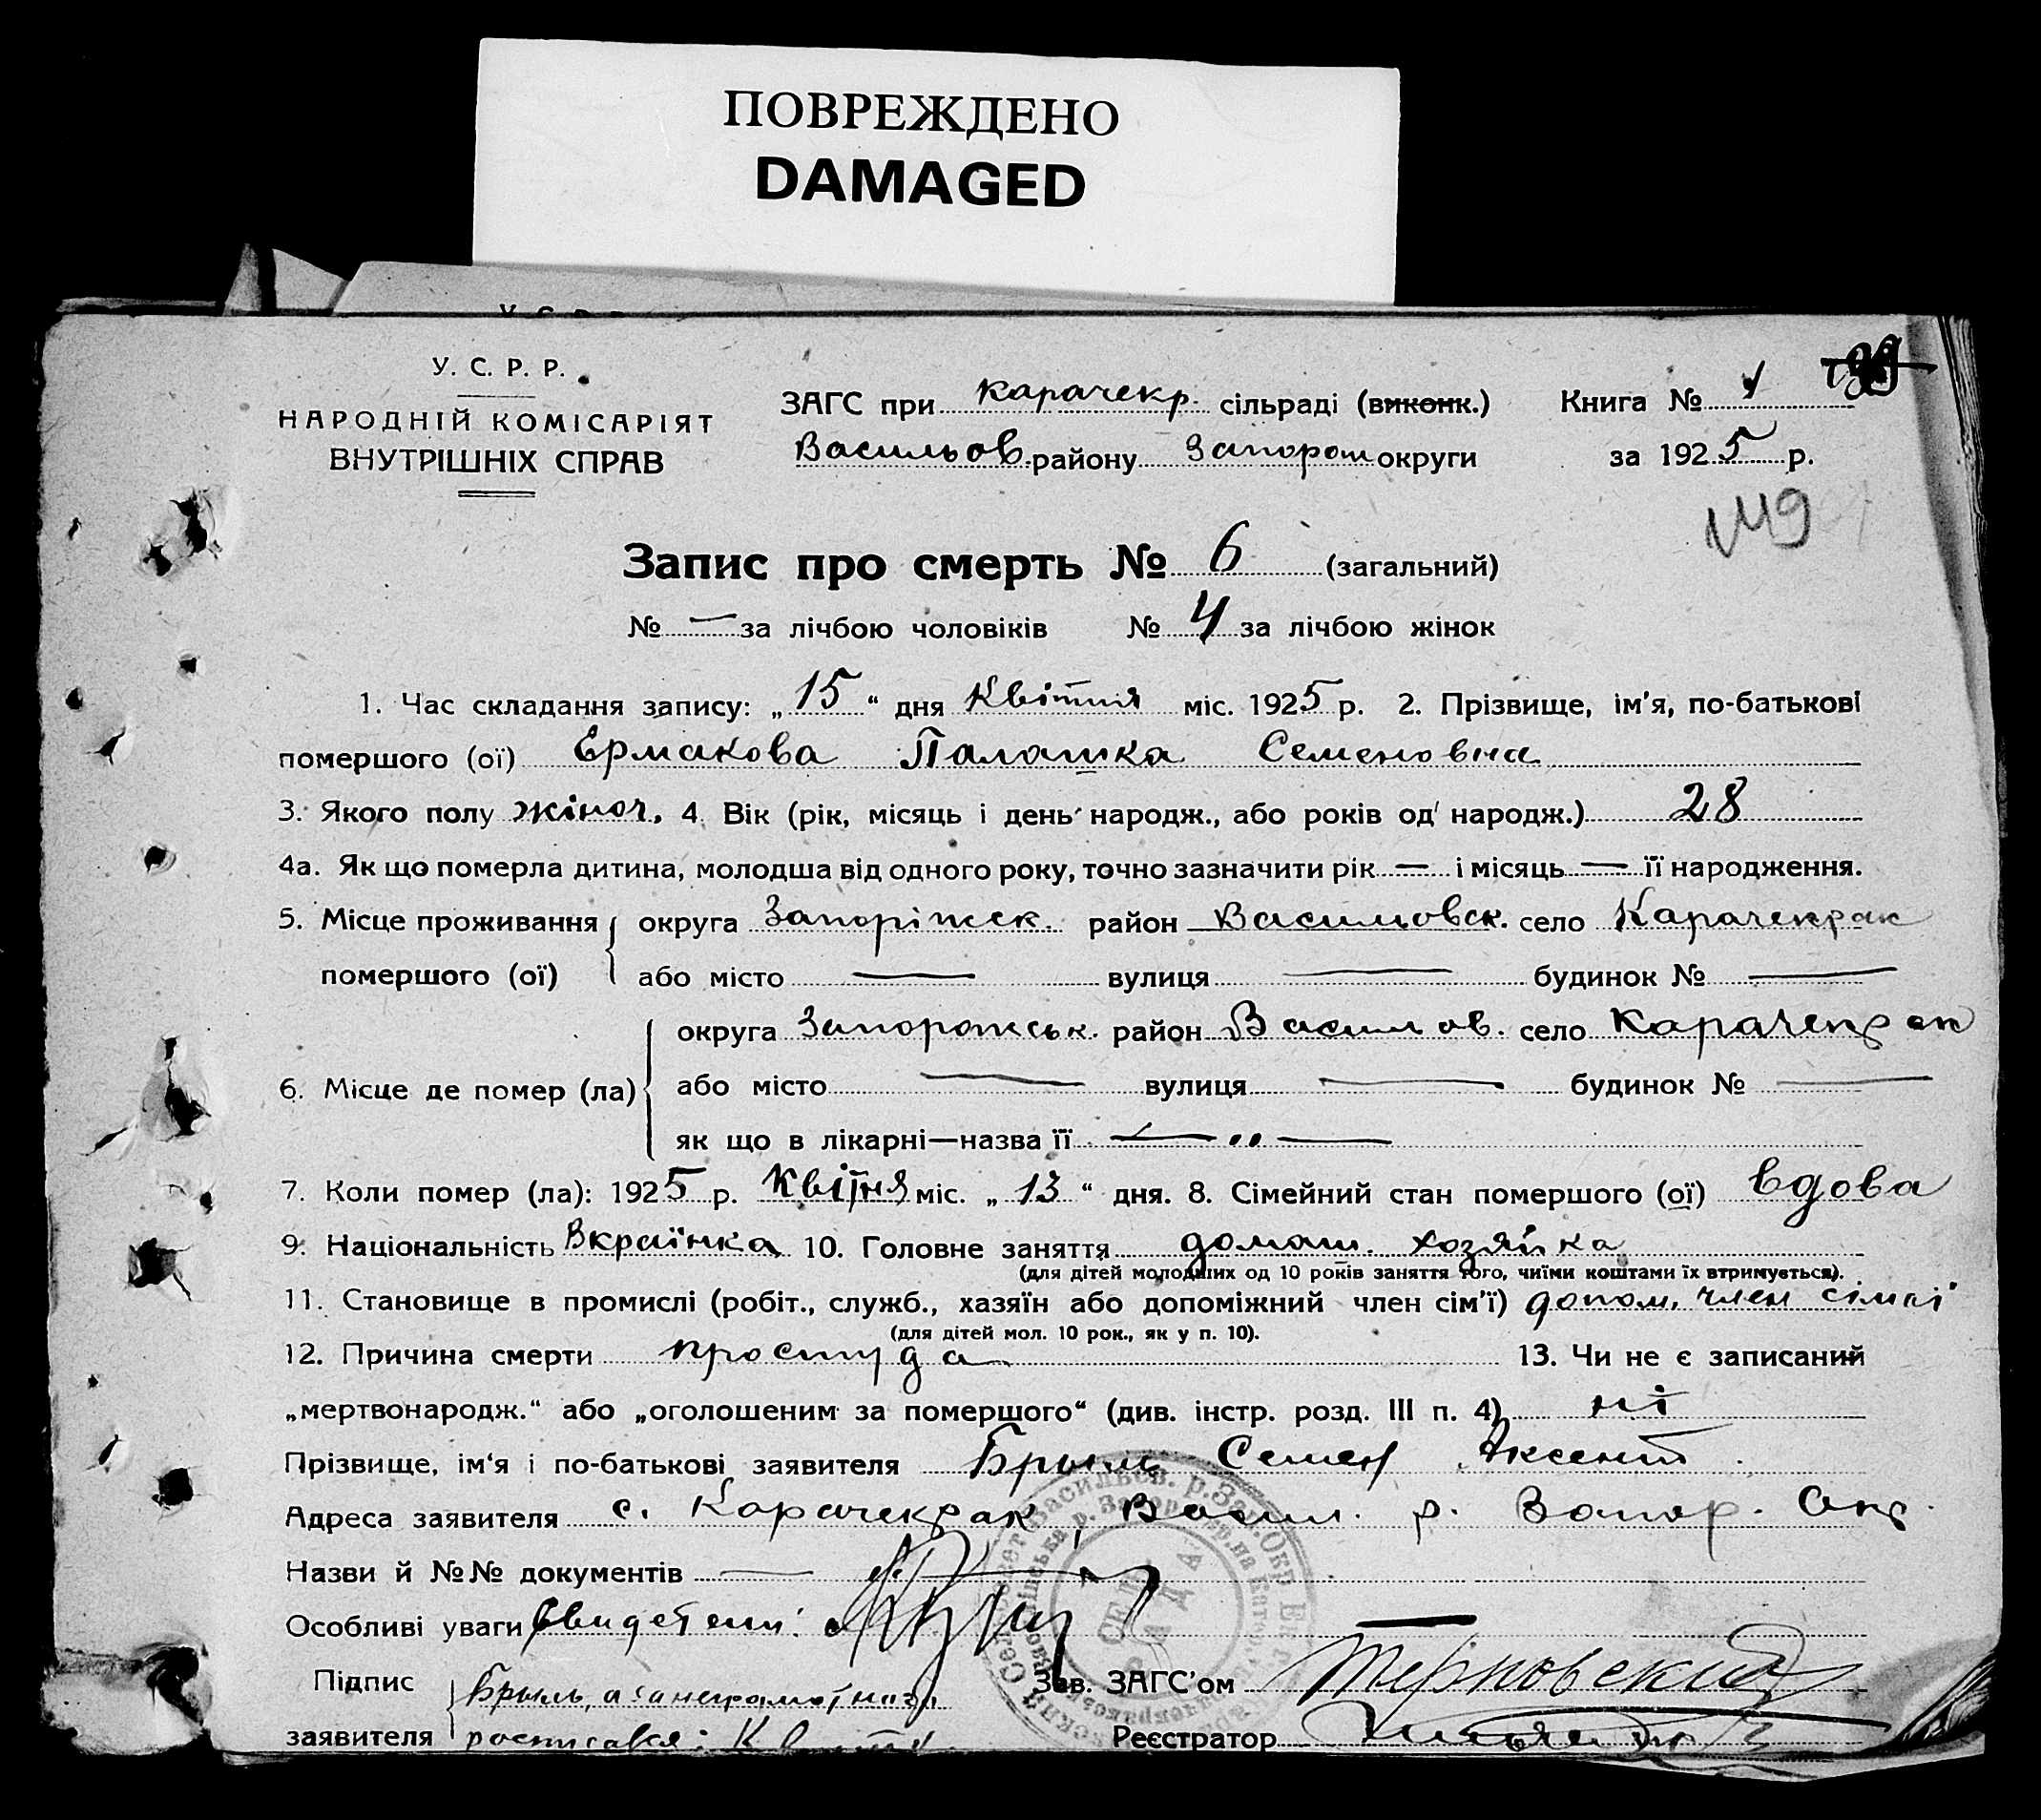 ПОВРЕЖДЕНО
DAMAGED
У. С. Р. Р.
НАРОДНІЙ КОМІСАРІЯТ
ВНУТРІШНІХ СПРАВ
ЗАГС при Карачекр. сільраді (виконк.) Книга № 1
Васильов району Запорож округи за 1925 р.
149
Запис про смерть № 6 (загальний)
№ — за лічбою чоловіків № 4 за лічбою жінок
1. Час складання запису: „15“ дня Квітня міс. 1925 р. 2. Прізвище, ім'я, по-батькові
помершого (ої) Ермакова Палашка Семеновна
3. Якого полу жіноч. 4. Вік (рік, місяць і день народж., або років од народж.) 28
4а. Як що померла дитина, молодша від одного року, точно зазначити рік — і місяць — її народження.
5. Місце проживання округа Запоріжск. район Васильовск. село Карачекрак
помершого (ої) або місто — вулиця — будинок № —
округа Запорожськ. район Васильов. село Карачекрак
6. Місце де помер (ла) або місто — вулиця — будинок № —
як що в лікарні—назва її — „ —
7. Коли помер (ла): 1925 р. Квітня міс. „13“ дня. 8. Сімейний стан помершого (ої) вдова
9. Національність Вкраїнка 10. Головне заняття домаш. хозяйка
(для дітей молодших од 10 років заняття того, чиїми коштами їх втримується).
11. Становище в промислі (робіт., служб., хазяїн або допоміжний член сім'ї) допом. член сімьі
(для дітей мол. 10 рок., як у п. 10).
12. Причина смерти простуда 13. Чи не є записаний
„мертвонародж.“ або „оголошеним за помершого“ (див. інстр. розд. III п. 4) ні
Прізвище, ім'я і по-батькові заявителя Брыль Семен Аксент
Адреса заявителя с. Карачекрак, Васил. р. Запор. Окр.
Назви й №№ документів —
Особливі уваги Свидетели:
Підпис Брыль, а за неграмотназо Зав. ЗАГС'ом Терновский
заявителя росписався: Реєстратор
СЕЛЬ
РАДА